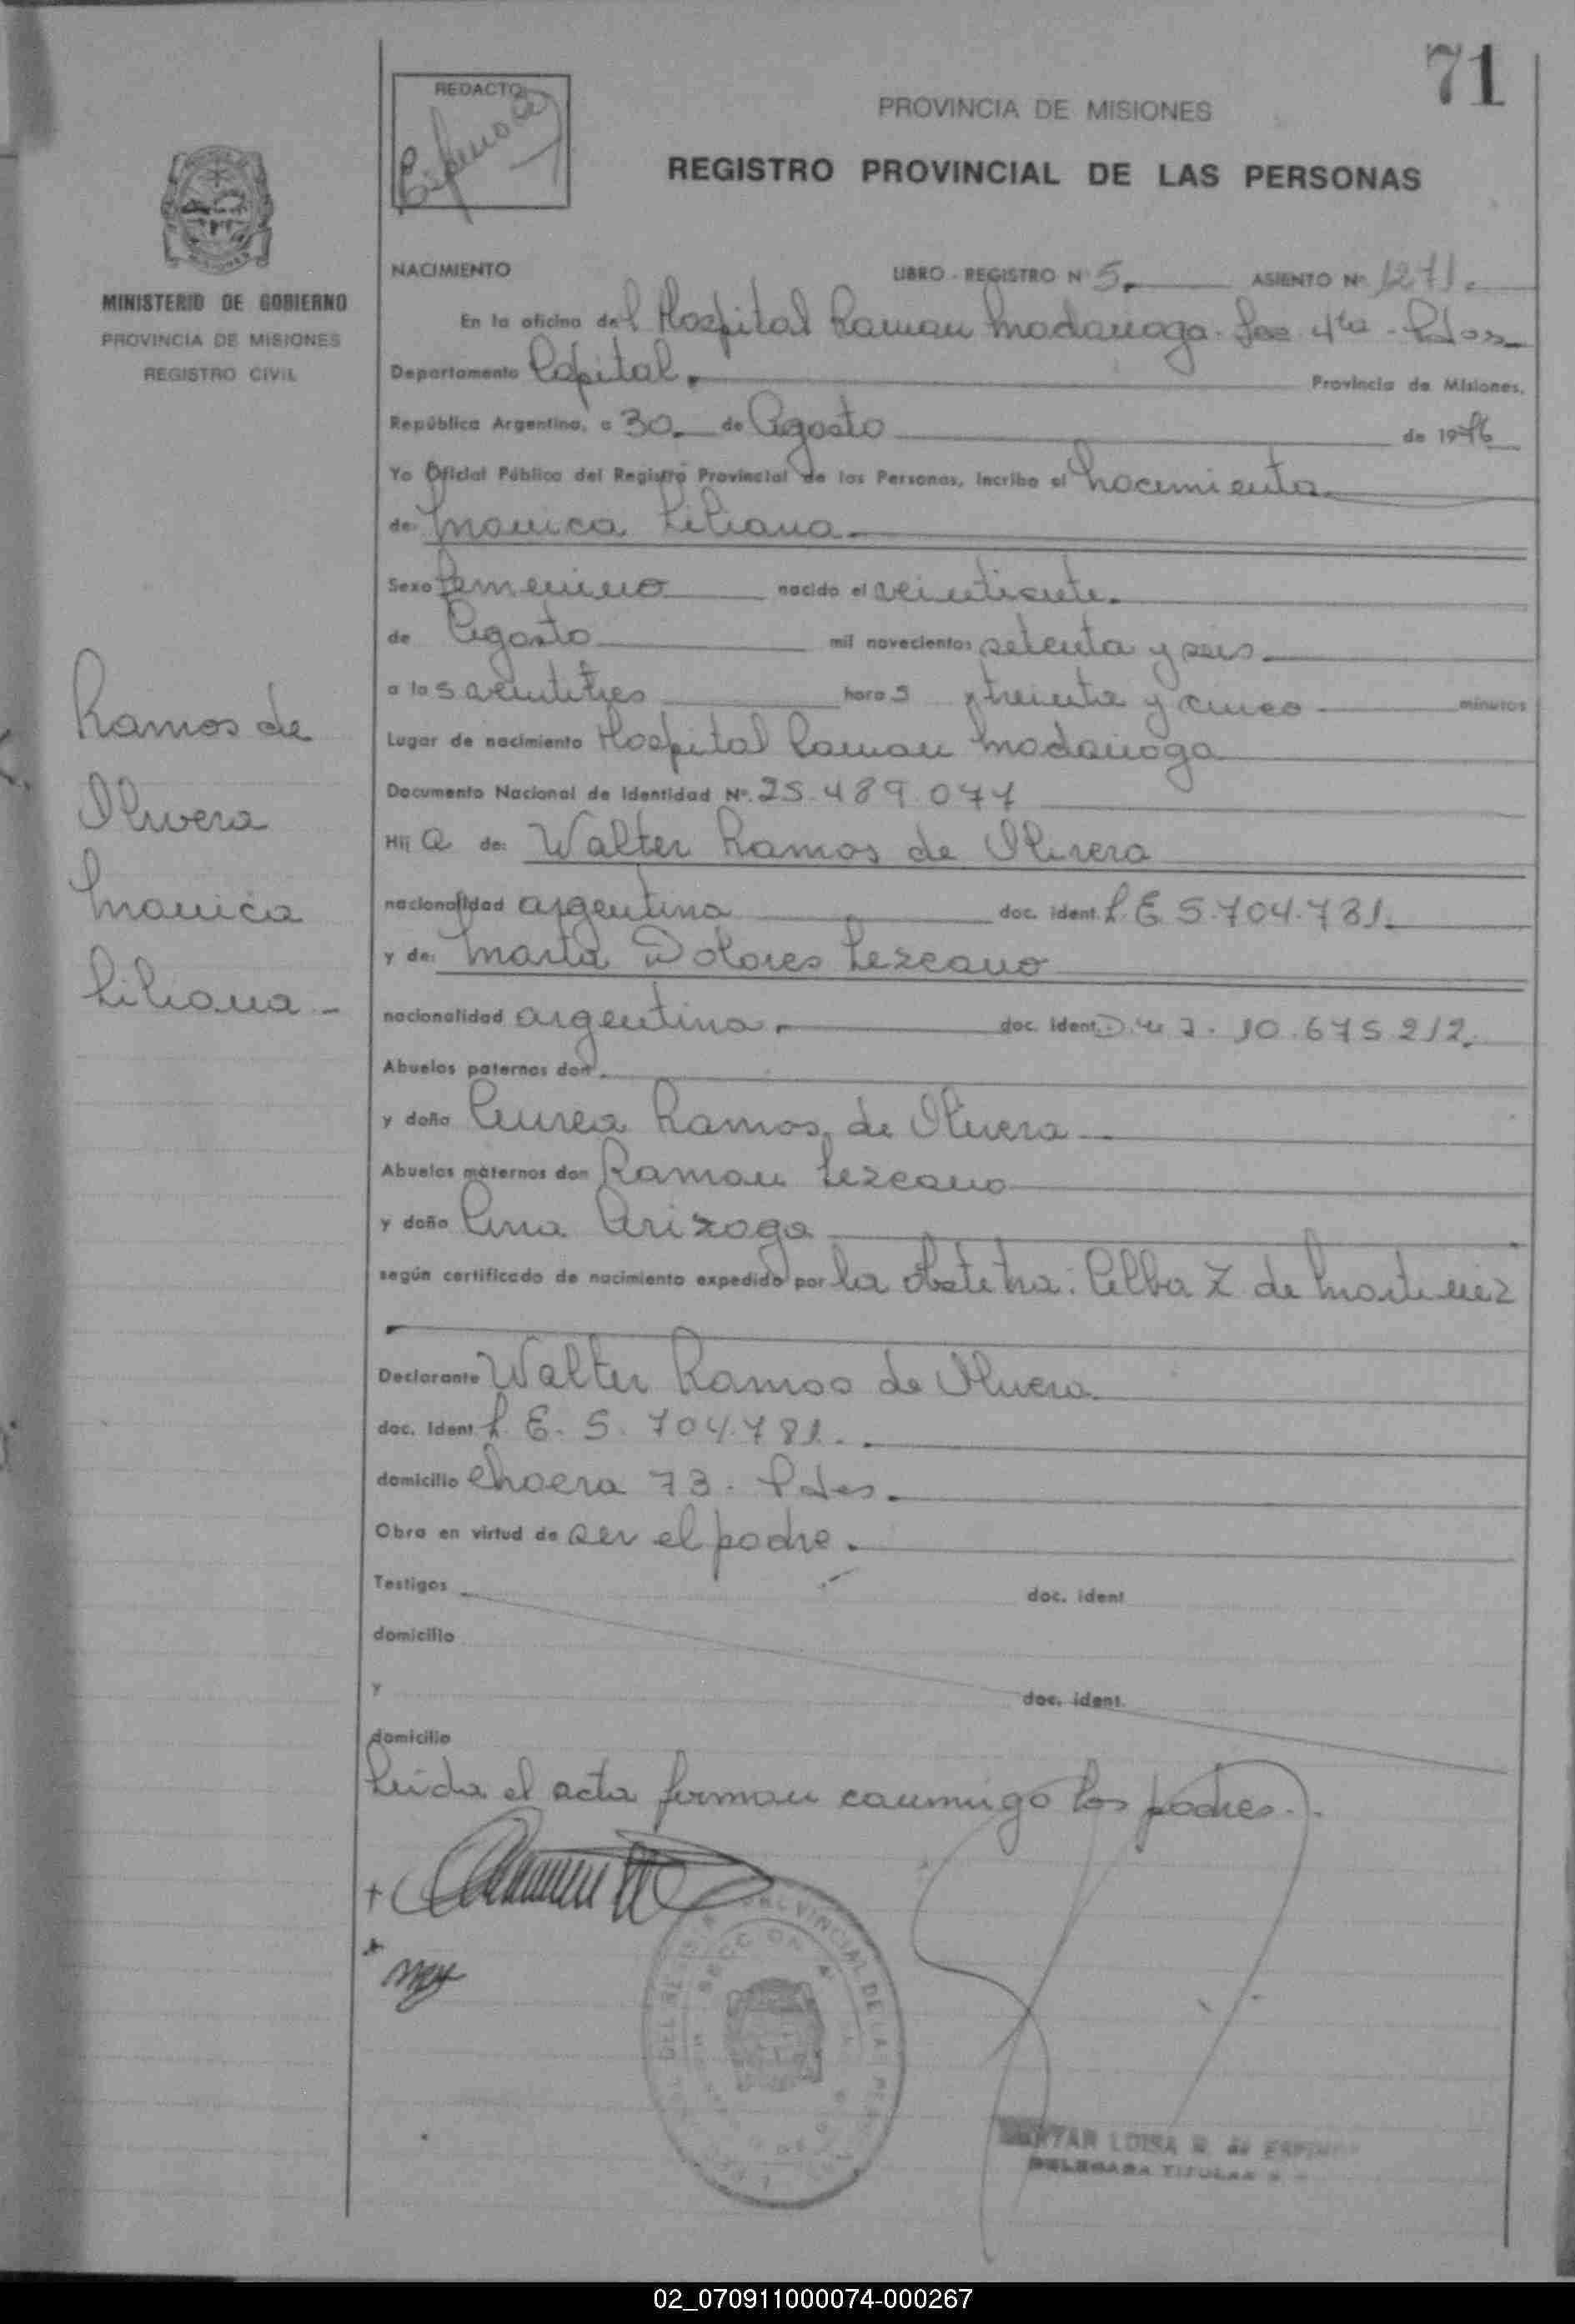 71
REDACTO
PROVINCIA DE MISIONES
REGISTRO PROVINCIAL DE LAS PERSONAS
MINISTERIO DE GOBIERNO
PROVINCIA DE MISIONES
REGISTRO CIVIL
NACIMIENTO LIBRO - REGISTRO Nº 5. ASIENTO Nº 1271.
En la oficina del Hospital Ramon Madariaga. Sec. 4ta - Pdas
Departamento Capital. Provincia de Misiones.
República Argentina, a 30 de Agosto de 1976
Yo Oficial Público del Registro Provincial de las Personas, incribo el nacimiento
de: Monica Liliana
Sexo femenino nacido el veintisiete.
de Agosto mil novecientos setenta y seis
a las veintitres horas y treinta y cinco minutos
Lugar de nacimiento Hospital Ramon Madariaga
Documento Nacional de Identidad Nº. 25.489.077
Hij a de: Walter Ramos de Olivera
nacionalidad argentina doc. ident. L.E. 5.704.781.
y de: Marta Dolores Lezcano
nacionalidad argentina. doc. ident. D.N.I. 10.675.212.
Abuelos paternos don
y doña Aurea Ramos de Olivera
Abuelos maternos don Ramon Lezcano
y doña Ana Arizaga
según certificado de nacimiento expedido por la obstetra: Alba Z. de Martinez
Declarante Walter Ramos de Olivera
doc. ident. L.E. 5.704.781.
domicilio chacra 73. Pdas.
Obra en virtud de ser el padre.
Testigos doc. ident
domicilio
y doc. ident.
domicilio
Leida el acta firman conmigo los padres.
Ramos de
Olivera
Monica
Liliana -
LUISA
DELEGADA TITULAR
02_070911000074-000267